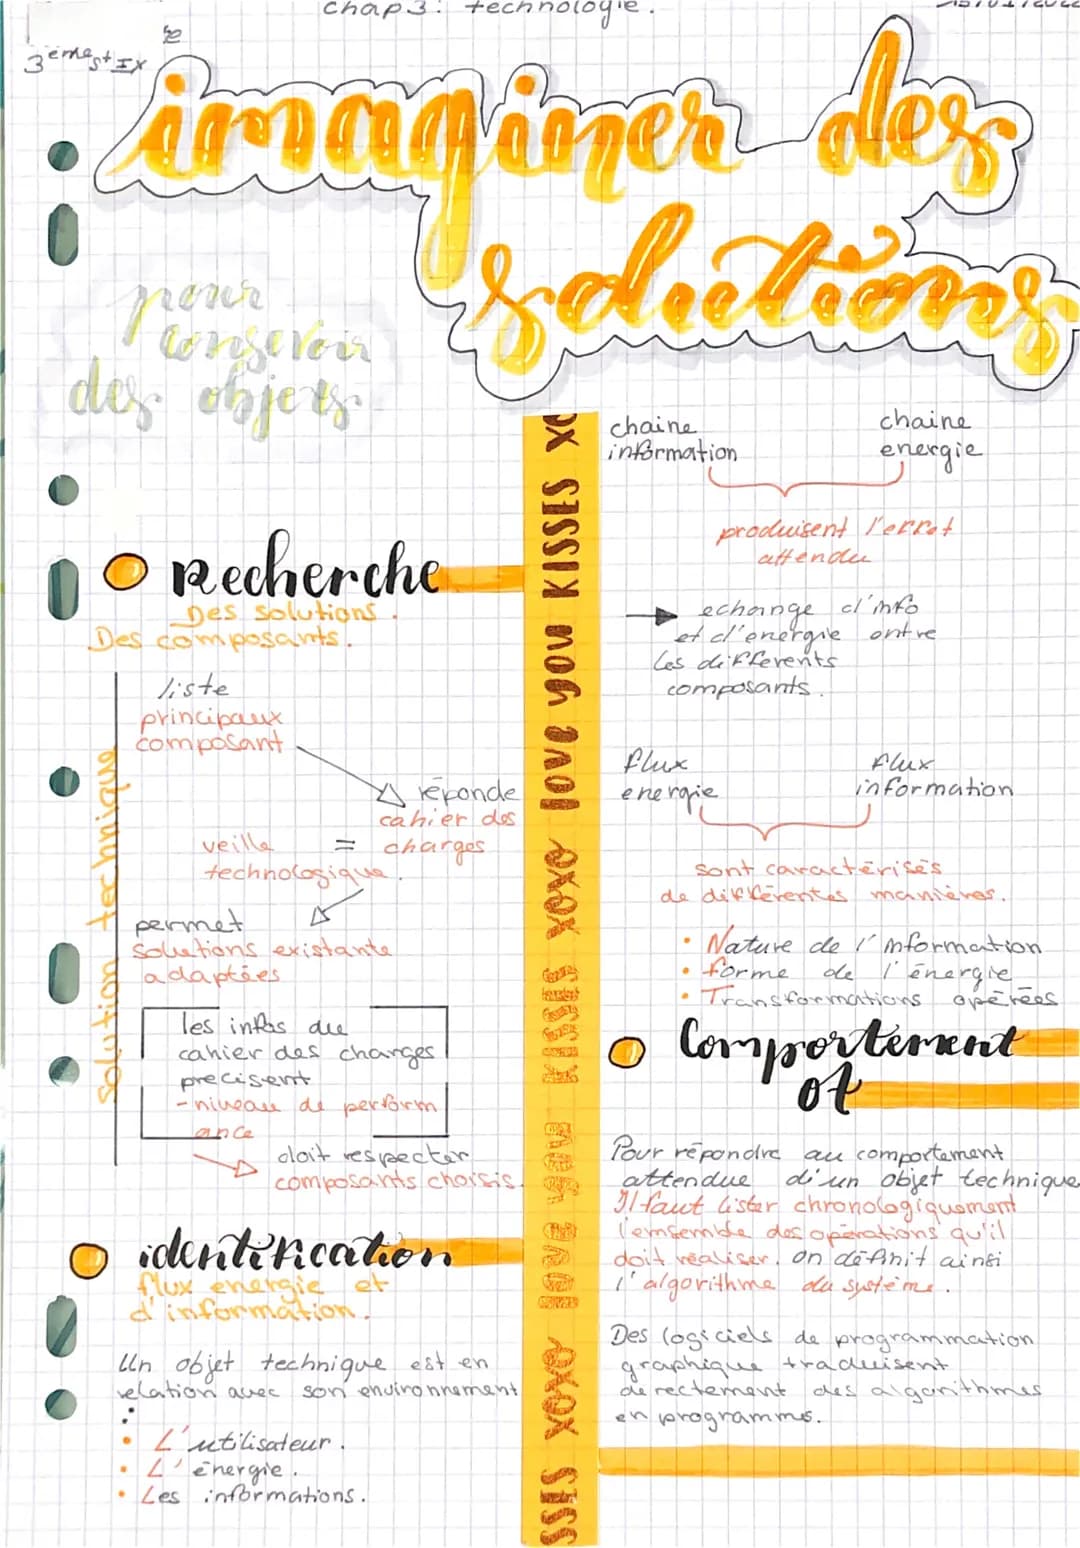 chap3: technologie.
3ème st IX
imaginer des
solutions
pour
conservoir
des objets.
Recherche
Des solutions.
Des composants.
solution technique
liste
principaux
composant
réponde
cahier des
charges
veille =
technologique.
permet
solutions existante
adaptées
les infos du
cahier des charges
precisent
- niveau de perform
ance
doit respecter
composants choisis.
identification
flux energie et
d'information.
Un objet technique est en
relation avec son environnement
:
• L'utilisateur.
• L'énergie.
• Les informations.
love you KISSES xoxo love you KISSES xoxo
chaine
information
chaine
energie
produisent l'effet
attendu
echange d'info
et d'energie entre
les differents
composants.
flux
energie
flux
information
sont caractérisés
de différentes manières.
• Nature de l'information
• forme de l'énergie
• Transformations opérées
Comportement
ot
Pour répondre au comportement
attendue d'un objet technique
Il faut lister chronologiquement
l'emsemble des opérations qu'il
doit réaliser. on définit ainsi
l'algorithme du système.
Des logiciels de programmation
graphique traduisent
derectement des algorithmes
en programmes.